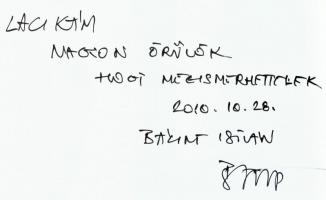 LACI KÁM
NAGYON ÖRÜLÖK
HOGY MEGISMERHETTELEK
2010. 10. 28.
BÁLINT ISTVÁN